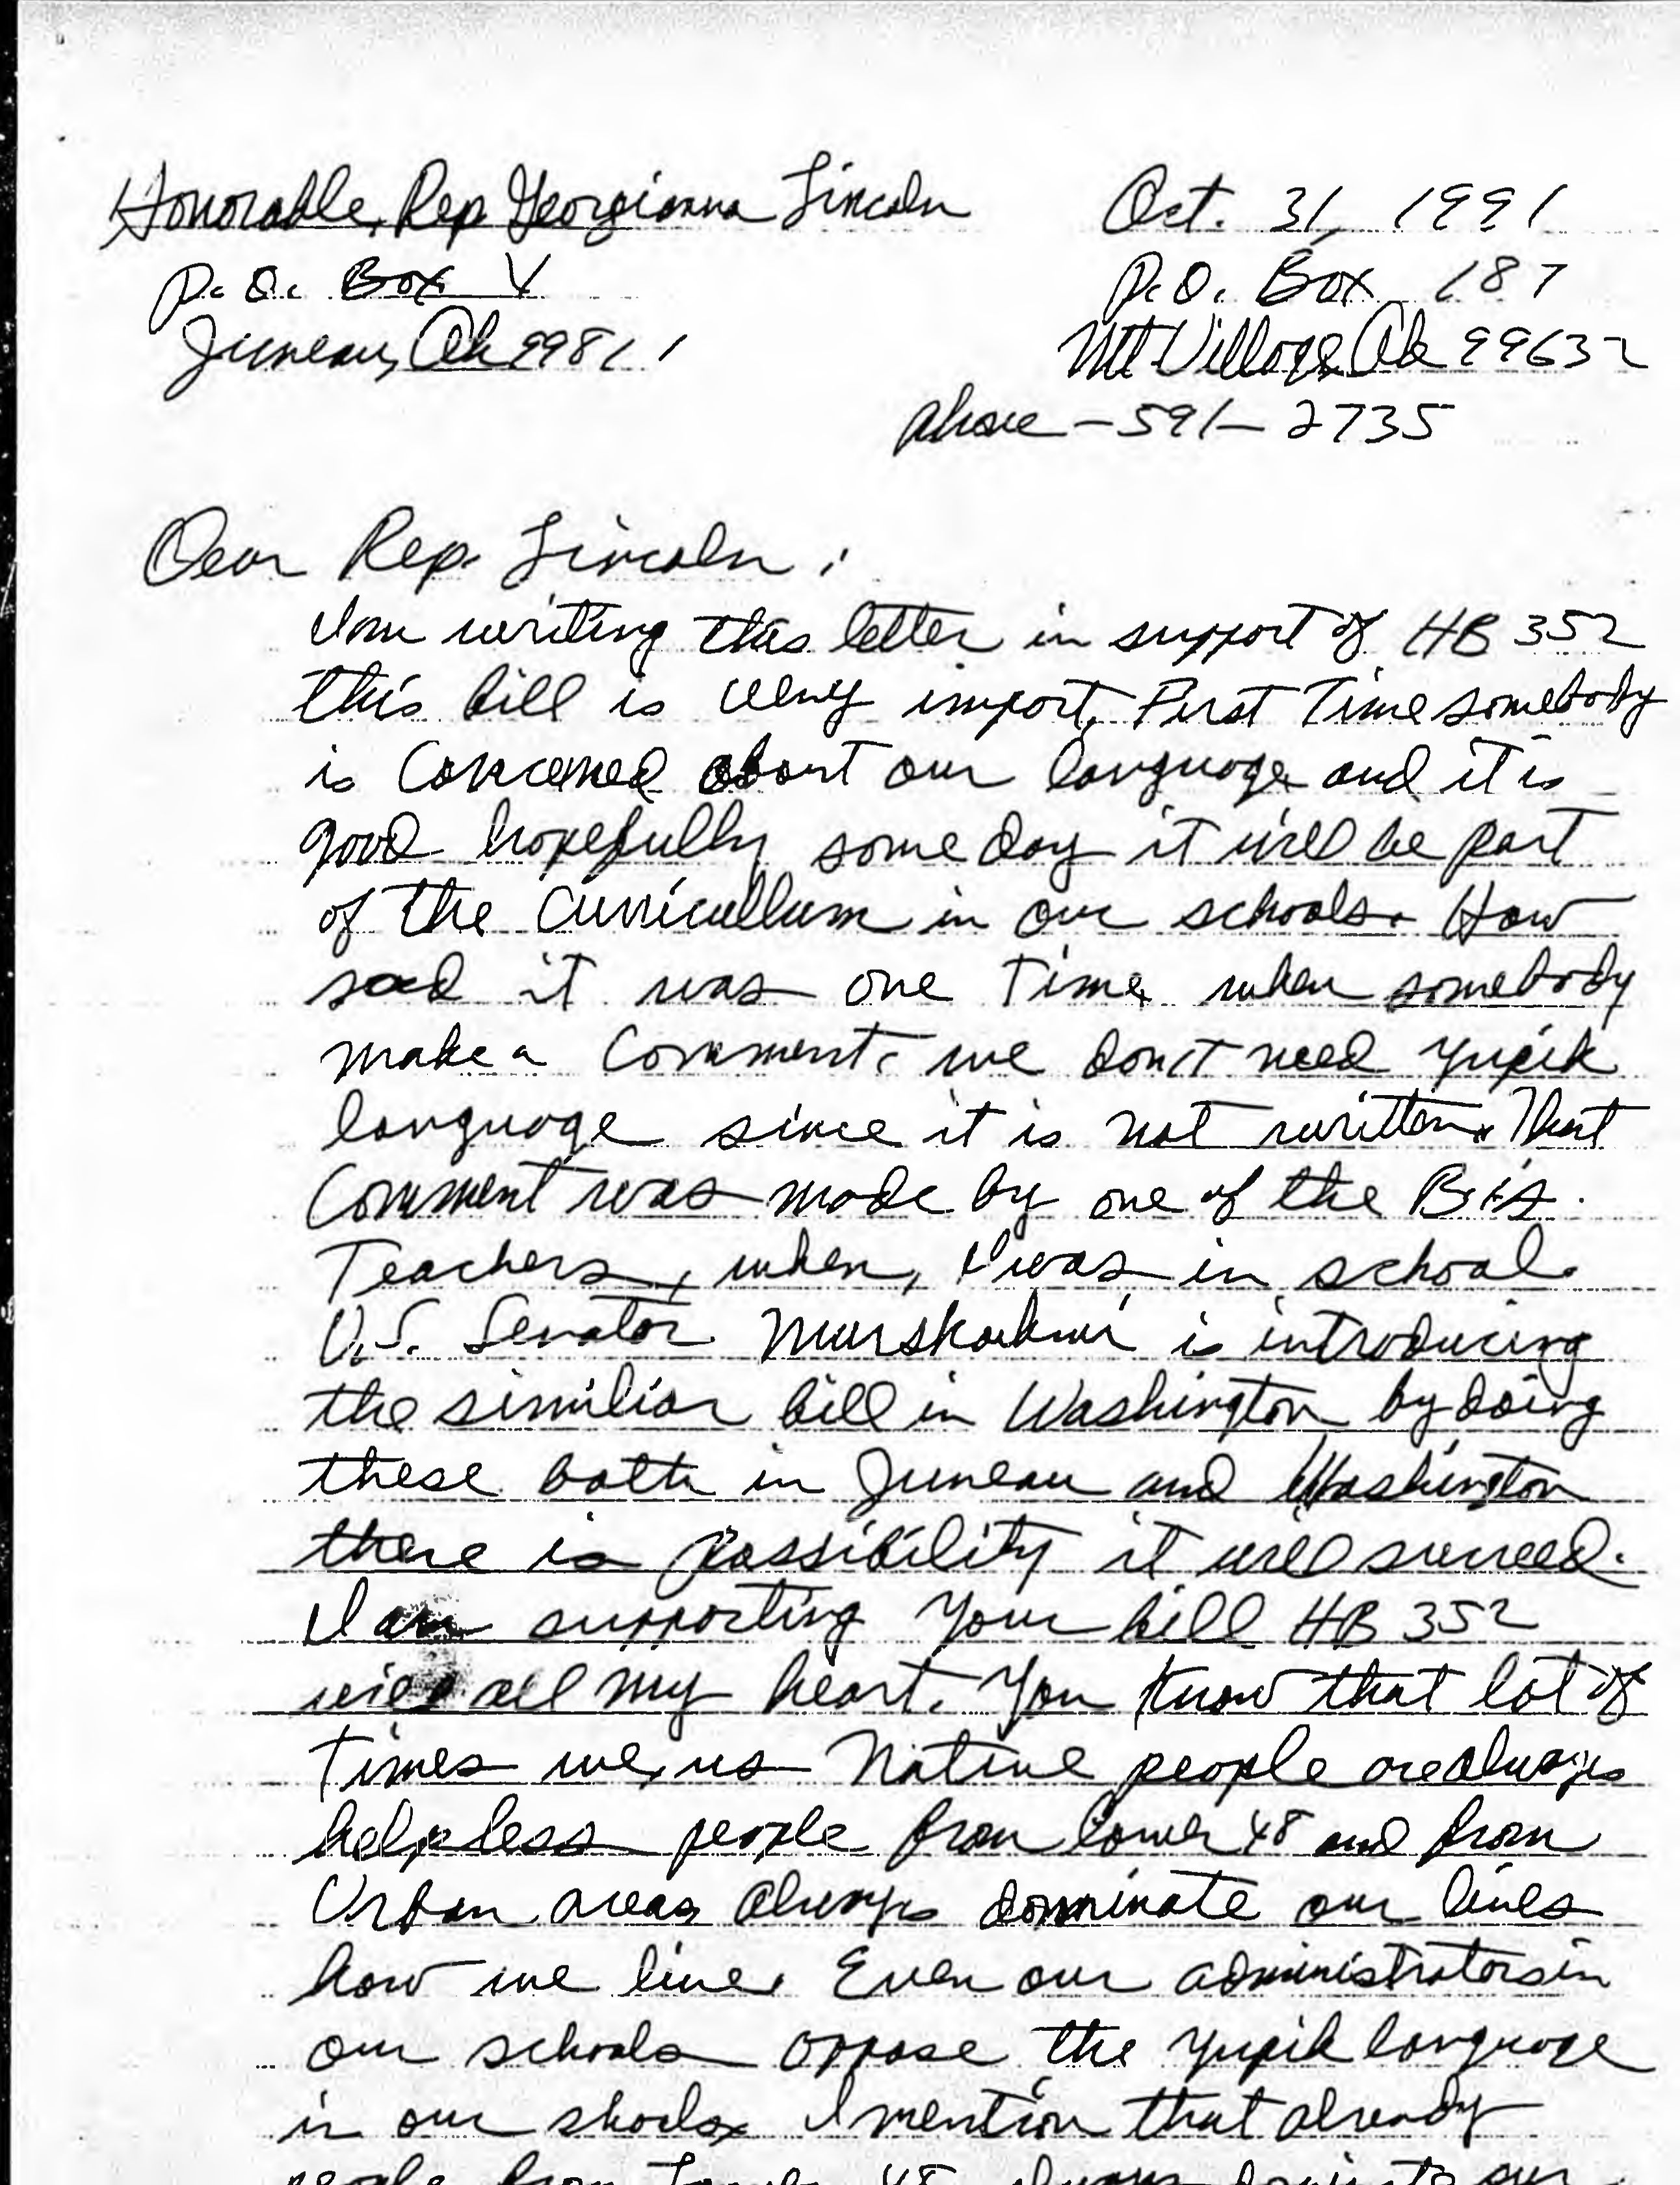 Honorable, Rep Georgianna Lincoln
Oct. 31, 1991
P.O. Box V
P.O. Box 187
Juneau, Ak 99811
Mt Village, Ak 99632
phone - 591-2735
Dear Rep. Lincoln:
I am writing this letter in support of HB 352
this bill is very import, First Time somebody
is concerned about our language and it is
good hopefully some day it will be part
of the curricullum in our schools. How
sad it was one time, when somebody
make a comment, we don't need yupik
language since it is not written. That
comment was made by one of the BIA
Teachers, when, I was in school.
U.S. Senator is introducing
the similiar bill in Washington by doing
these both in Juneau and Washington
there is possibility it will succeed.
I am supporting your bill HB 352
all my heart. You know that lot of
times we, us Native people are always
helpless people from lower 48 and from
Urban areas always dominate our lives
how we live. Even our administrators in
our schools oppose the yupik language
in our shools. I mention that already
people from Lower 48 always dominate our